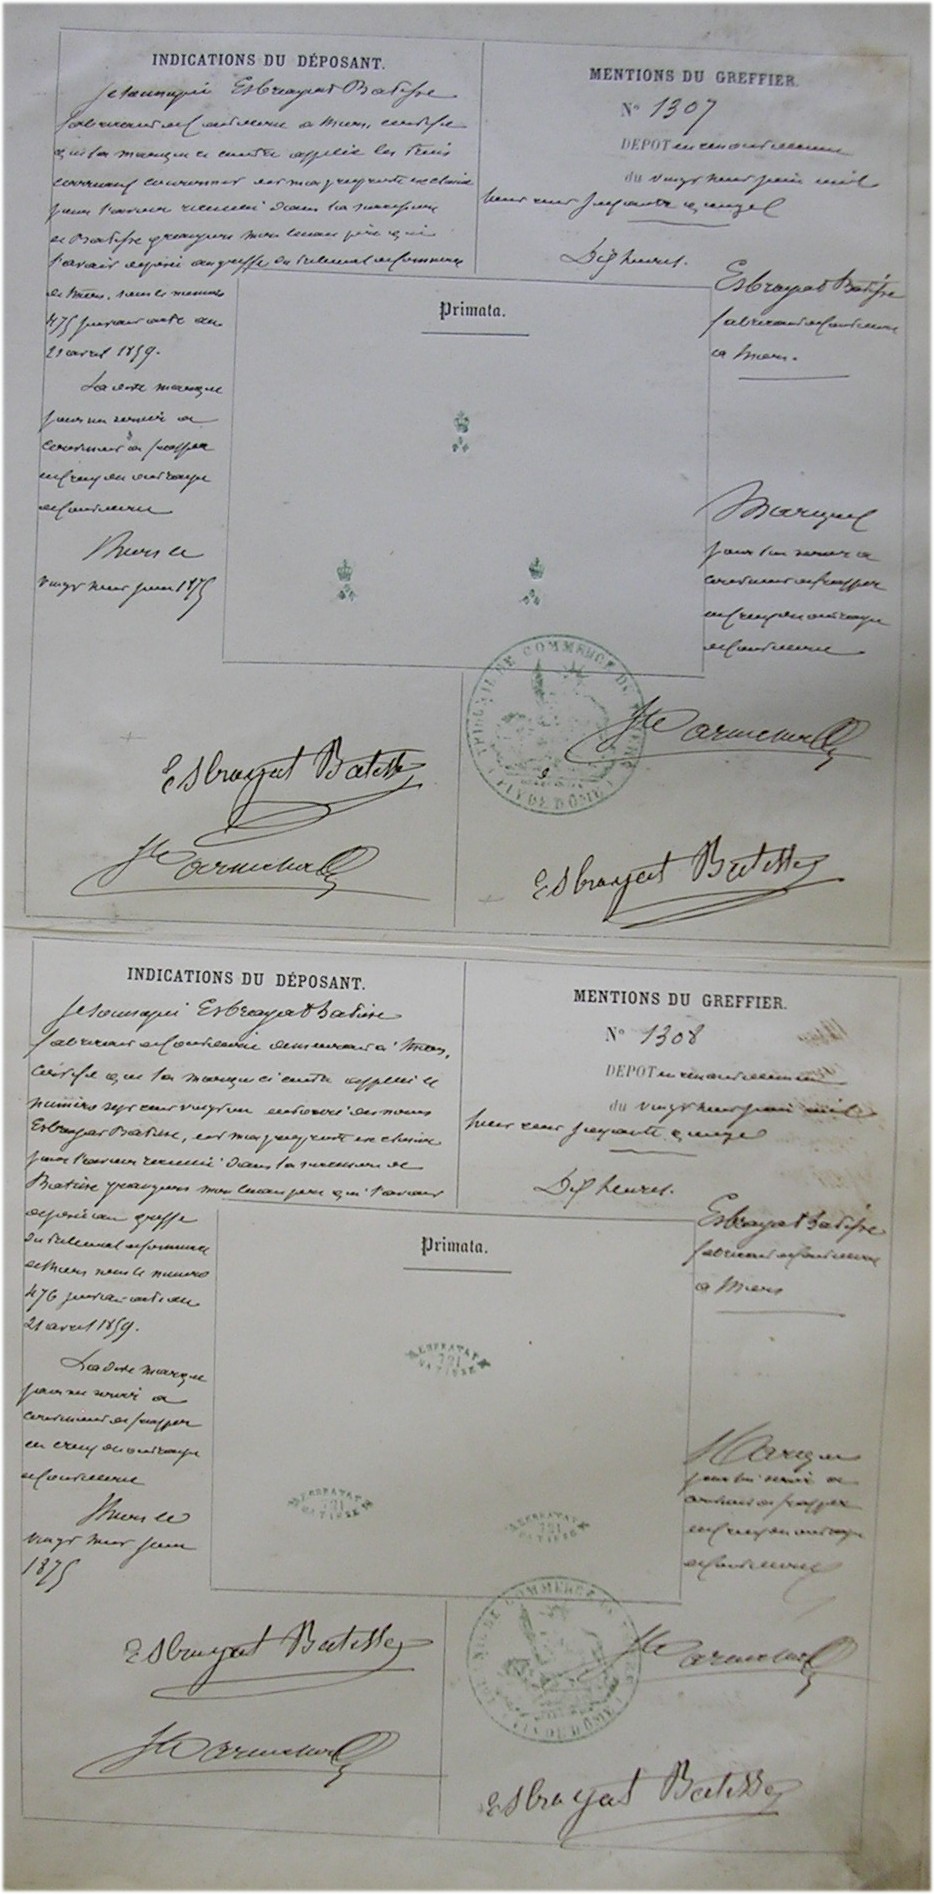 INDICATIONS DU DÉPOSANT.
Je soussigné Esbrayat Batisse
fabricant de Coutellerie a Thiers, certifie
que la marque ci contre appelée les trois
couronnés est ma propriété exclusive
pour l'avoir recueilli dans la succession
de Batisse mon père qui
l'avait déposé au greffe du tribunal de Commerce
de Thiers, sous le numéro
475 suivant acte du
21 avril 1859.
La dite marque
pour me servir a
continuer de frapper
en creux mon ouvrage
de Coutellerie
Thiers le
vingt neuf juin 1875
Esbrayat Batisse
MENTIONS DU GREFFIER.
N° 1307
DEPOT en renouvellement
du vingt neuf juin mil
huit cent soixante quinze
Dix heures.
Esbrayat Batisse
fabricant de Coutellerie
a Thiers.
Primata.
Marque
pour lui servir a
continuer de frapper
en creux son ouvrage
de Coutellerie
TRIBUNAL DE COMMERCE DE THIERS
(PUY DE DÔME)
Esbrayat Batisse
INDICATIONS DU DÉPOSANT.
Je soussigné Esbrayat Batisse
fabricant de Coutellerie demeurant à Thiers,
Certifie que la marque ci contre appelée le
numéro sept cent vingt un entouré des noms
Esbrayat Batisse, est ma propriété exclusive
pour l'avoir recueilli dans la succession de
Batisse mon père qui l'avait
déposé au greffe
du tribunal de Commerce
de Thiers sous le numéro
476 suivant acte du
21 avril 1859.
La dite marque
pour me servir a
continuer de frapper
en creux mon ouvrage
de Coutellerie
Thiers le
vingt neuf juin
1875
Esbrayat Batisse
MENTIONS DU GREFFIER.
N° 1308
DEPOT en renouvellement
du vingt neuf juin mil
huit cent soixante quinze
Dix heures.
Esbrayat Batisse
fabricant de Coutellerie
a Thiers
Primata.
ESBRAYAT
721
BATISSE
ESBRAYAT
721
BATISSE
ESBRAYAT
721
BATISSE
Marque
pour lui servir a
continuer de frapper
en creux son ouvrage
de Coutellerie
TRIBUNAL DE COMMERCE DE THIERS
(PUY DE DÔME)
Esbrayat Batisse